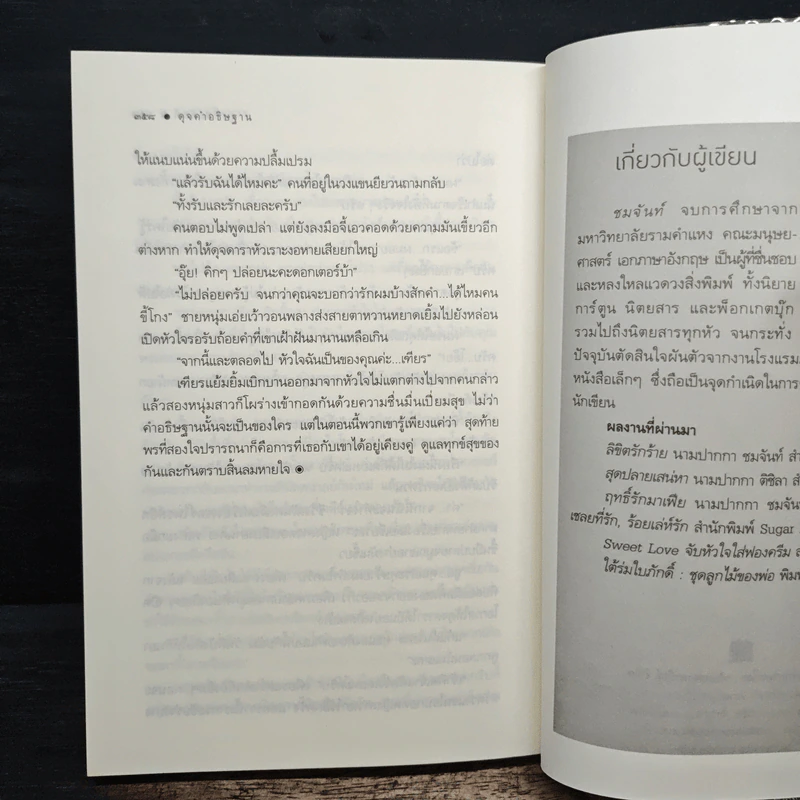 ๓๕๘ ● ดุจคำอธิษฐาน
ให้แนบแน่นขึ้นด้วยความปลื้มเปรม
“แล้วรับฉันได้ไหมคะ” คนที่อยู่ในวงแขนยียวนถามกลับ
“ทั้งรับและรักเลยละครับ”
คนตอบไม่พูดเปล่า แต่ยังลงมือจี้เอวคอดด้วยความมันเขี้ยวอีก
ต่างหาก ทำให้ดุจดาราหัวเราะงอหายเสียยกใหญ่
“อุ๊ย! คิกๆ ปล่อยนะคะดอกเตอร์บ้า”
“ไม่ปล่อยครับ จนกว่าคุณจะบอกว่ารักผมบ้างสักคำ...ได้ไหมคน
ขี้โกง” ชายหนุ่มเอ่ยเว้าวอนพลางส่งสายตาหวานหยาดเยิ้มไปยังหล่อน
เปิดหัวใจรอรับถ้อยคำที่เขาเฝ้าฝันมานานเหลือเกิน
“จากนี้และตลอดไป หัวใจฉันเป็นของคุณค่ะ...เทียร”
เทียรแย้มยิ้มเบิกบานออกมาจากหัวใจไม่แตกต่างไปจากคนกล่าว
แล้วสองหนุ่มสาวก็โผร่างเข้ากอดกันด้วยความชื่นมื่นเปี่ยมสุข ไม่ว่า
คำอธิษฐานนั้นจะเป็นของใคร แต่ในตอนนี้พวกเขารู้เพียงแค่ว่า สุดท้าย
พรที่สองใจปรารถนาก็คือการที่เธอกับเขาได้อยู่เคียงคู่ ดูแลทุกข์สุขของ
กันและกันตราบสิ้นลมหายใจ ◉
เกี่ยวกับผู้เขียน
ชมจันท์ จบการศึกษาจาก
มหาวิทยาลัยรามคำแหง คณะมนุษย-
ศาสตร์ เอกภาษาอังกฤษ เป็นผู้ที่ชื่นชอบ
และหลงใหลแวดวงสิ่งพิมพ์ ทั้งนิยาย
การ์ตูน นิตยสาร และพ็อกเกตบุ๊ก
รวมไปถึงนิตยสารทุกหัว จนกระทั่ง
ปัจจุบันตัดสินใจผันตัวจากงานโรงแรม
หนังสือเล็กๆ ซึ่งถือเป็นจุดกำเนิดในการ
นักเขียน
ผลงานที่ผ่านมา
ลิขิตรักร้าย นามปากกา ชมจันท์
สุดปลายเสน่หา นามปากกา ติชิลา
ฤทธิ์รักมาเฟีย นามปากกา ชมจัน
เชลยที่รัก, ร้อยเล่ห์รัก สำนักพิมพ์ Sugar
Sweet Love จับหัวใจใส่ฟองครีม
ใต้ร่มใบภักดิ์ : ชุดลูกไม้ของพ่อ พิมพ์